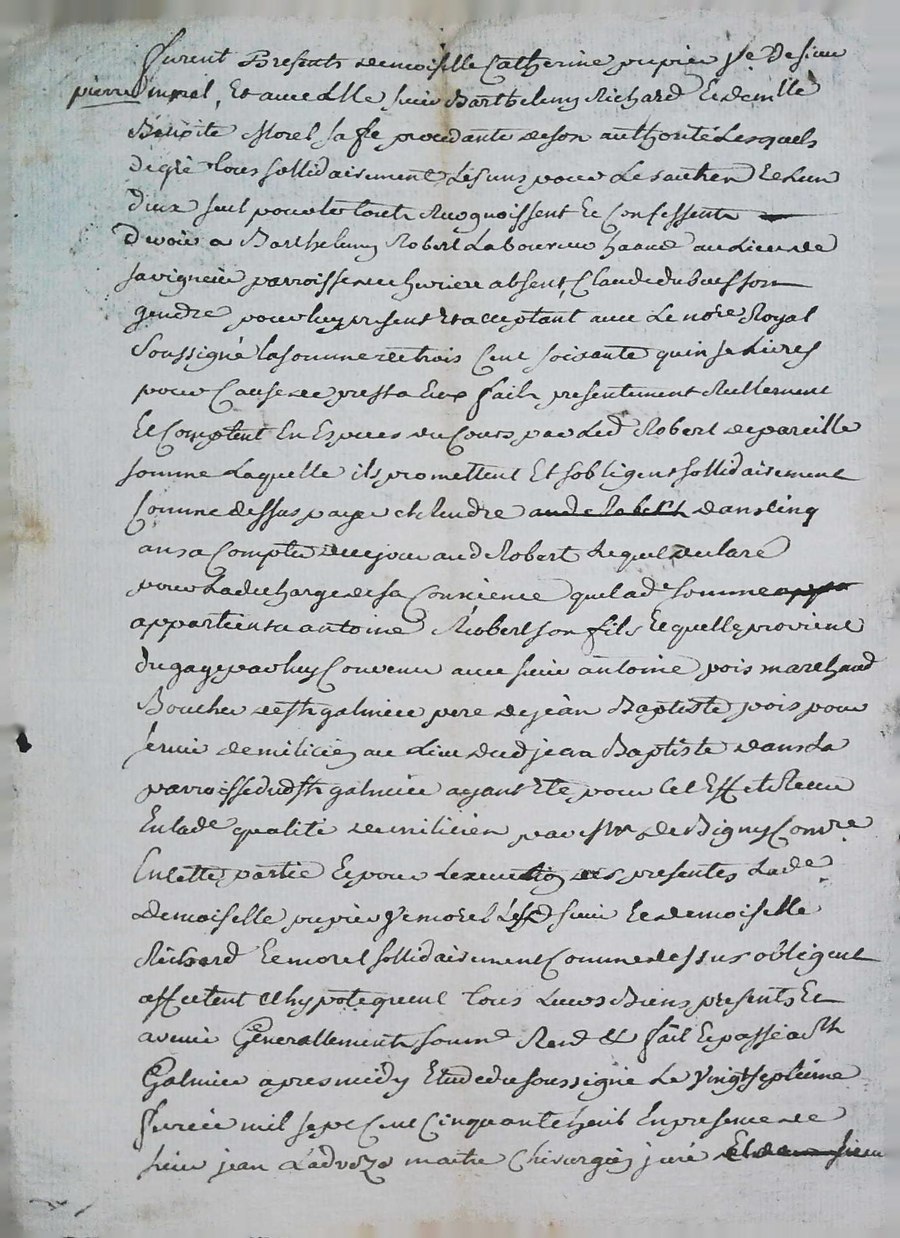 furent Presents demoiselle Catherine pupier ve de sieur
pierre morel, Et avec Elle sieur Barthelemy Richard Et demlle
Benoite Morel sa fe procedante de son authorité Lesquels
de gré tous sollidairement Les uns pour Les autres Et Lun
deux seul pour le tout Recognoissent Et Confessent
devoir a Barthelemy Robert Laboureur hant au Lieu de
savigneu parroisse de absent, Claude dubuisson
gendre pour luy present Et acceptant avec Le nore Royal
Soussigné la somme de trois Cent soixante quinse Livres
pour Cause de prest a Eux fait presentement Reellement
Et Comptent En Especes du Cours par Led Robert de pareille
somme Laquelle ils promettent Et sobligent sollidairement
Comme dessus payer et Rendre aud Robert dans Cinq
ans a Compter de ce jour aud Robert Lequel declare
pour La decharge de sa Conscience que lade somme appa
appartient a antoine Robert son fils Et quelle provient
du gage par luy Convenu avec sieur antoine pois marchand
Boucher de st galmier pere de jean Baptiste pois pour
servir de milicien au Lieu dud jean Baptiste dans La
parroisse dud st galmier ayant Eté pour Cet Effet Receu
En lade qualité de milicien par Mr de Bigny Comre
En cette partie Et pour Lexecution des presentes Lade
demoiselle pupier ve morel Lesd sieur Et demoiselle
Richard Et morel sollidairement Comme dessus obligent
affectent Et hypotequent tous Leurs Biens presents Et
avenir Generallement soumd Rend &c fait Et passé a St
Galmier apres midy Etude du soussigné Le vingt septieme
fevrier mil sept Cent Cinquante huit En presence de
sieur jean Ladveze maitre Chirurgien juré Et de sieur